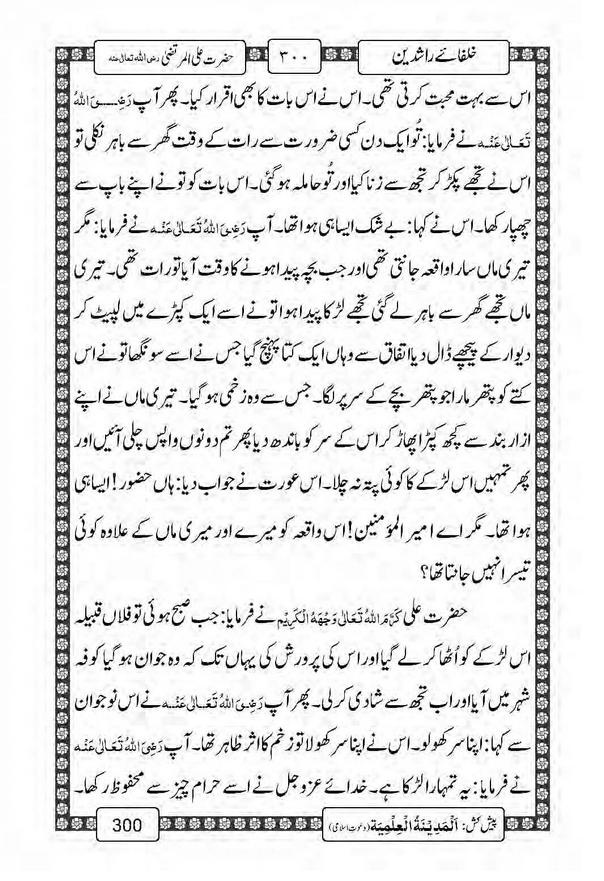 خلفائے راشدین ۳۰۰ حضرت علی المرتضیٰ رضی اللہ تعالیٰ عنہ
اس سے بہت محبت کرتی تھی۔ اس نے اس بات کا بھی اقرار کیا۔ پھر آپ رَضِیَ اللہُ
تَعَالٰی عَنْہ نے فرمایا: تُو ایک دن کسی ضرورت سے رات کے وقت گھر سے باہر نکلی تو
اس نے تجھے پکڑ کر تجھ سے زنا کیا اور تُو حاملہ ہو گئی۔ اس بات کو تو نے اپنے باپ سے
چھپا رکھا۔ اس نے کہا: بے شک ایسا ہی ہوا تھا۔ آپ رَضِیَ اللہُ تَعَالٰی عَنْہ نے فرمایا: مگر
تیری ماں سارا واقعہ جانتی تھی اور جب بچہ پیدا ہونے کا وقت آیا تو رات تھی۔ تیری
ماں تجھے گھر سے باہر لے گئی تجھے لڑکا پیدا ہوا تو نے اسے ایک کپڑے میں لپیٹ کر
دیوار کے پیچھے ڈال دیا اتفاق سے وہاں ایک کتا پہنچ گیا جس نے اسے سونگھا تو نے اس
کتے کو پتھر مارا جو پتھر بچے کے سر پر لگا۔ جس سے وہ زخمی ہو گیا۔ تیری ماں نے اپنے
ازار بند سے کچھ کپڑا پھاڑ کر اس کے سر کو باندھ دیا پھر تم دونوں واپس چلی آئیں اور
پھر تمہیں اس لڑکے کا کوئی پتہ نہ چلا۔ اس عورت نے جواب دیا: ہاں حضور! ایسا ہی
ہوا تھا۔ مگر اے امیر المؤمنین! اس واقعہ کو میرے اور میری ماں کے علاوہ کوئی
تیسرا نہیں جانتا تھا؟
حضرت علی کَرَّمَ اللہُ تَعَالٰی وَجْہَہُ الْکَرِیْم نے فرمایا: جب صبح ہوئی تو فلاں قبیلہ
اس لڑکے کو اُٹھا کر لے گیا اور اس کی پرورش کی یہاں تک کہ وہ جوان ہو گیا کوفہ
شہر میں آیا اور اب تجھ سے شادی کر لی۔ پھر آپ رَضِیَ اللہُ تَعَالٰی عَنْہ نے اس نوجوان
سے کہا: اپنا سر کھولو۔ اس نے اپنا سر کھولا تو زخم کا اثر ظاہر تھا۔ آپ رَضِیَ اللہُ تَعَالٰی عَنْہ
نے فرمایا: یہ تمہارا لڑکا ہے۔ خدائے عزوجل نے اسے حرام چیز سے محفوظ رکھا۔
پیش کش: اَلْمَدِیْنَۃُ الْعِلْمِیَۃ (دعوتِ اسلامی) 300